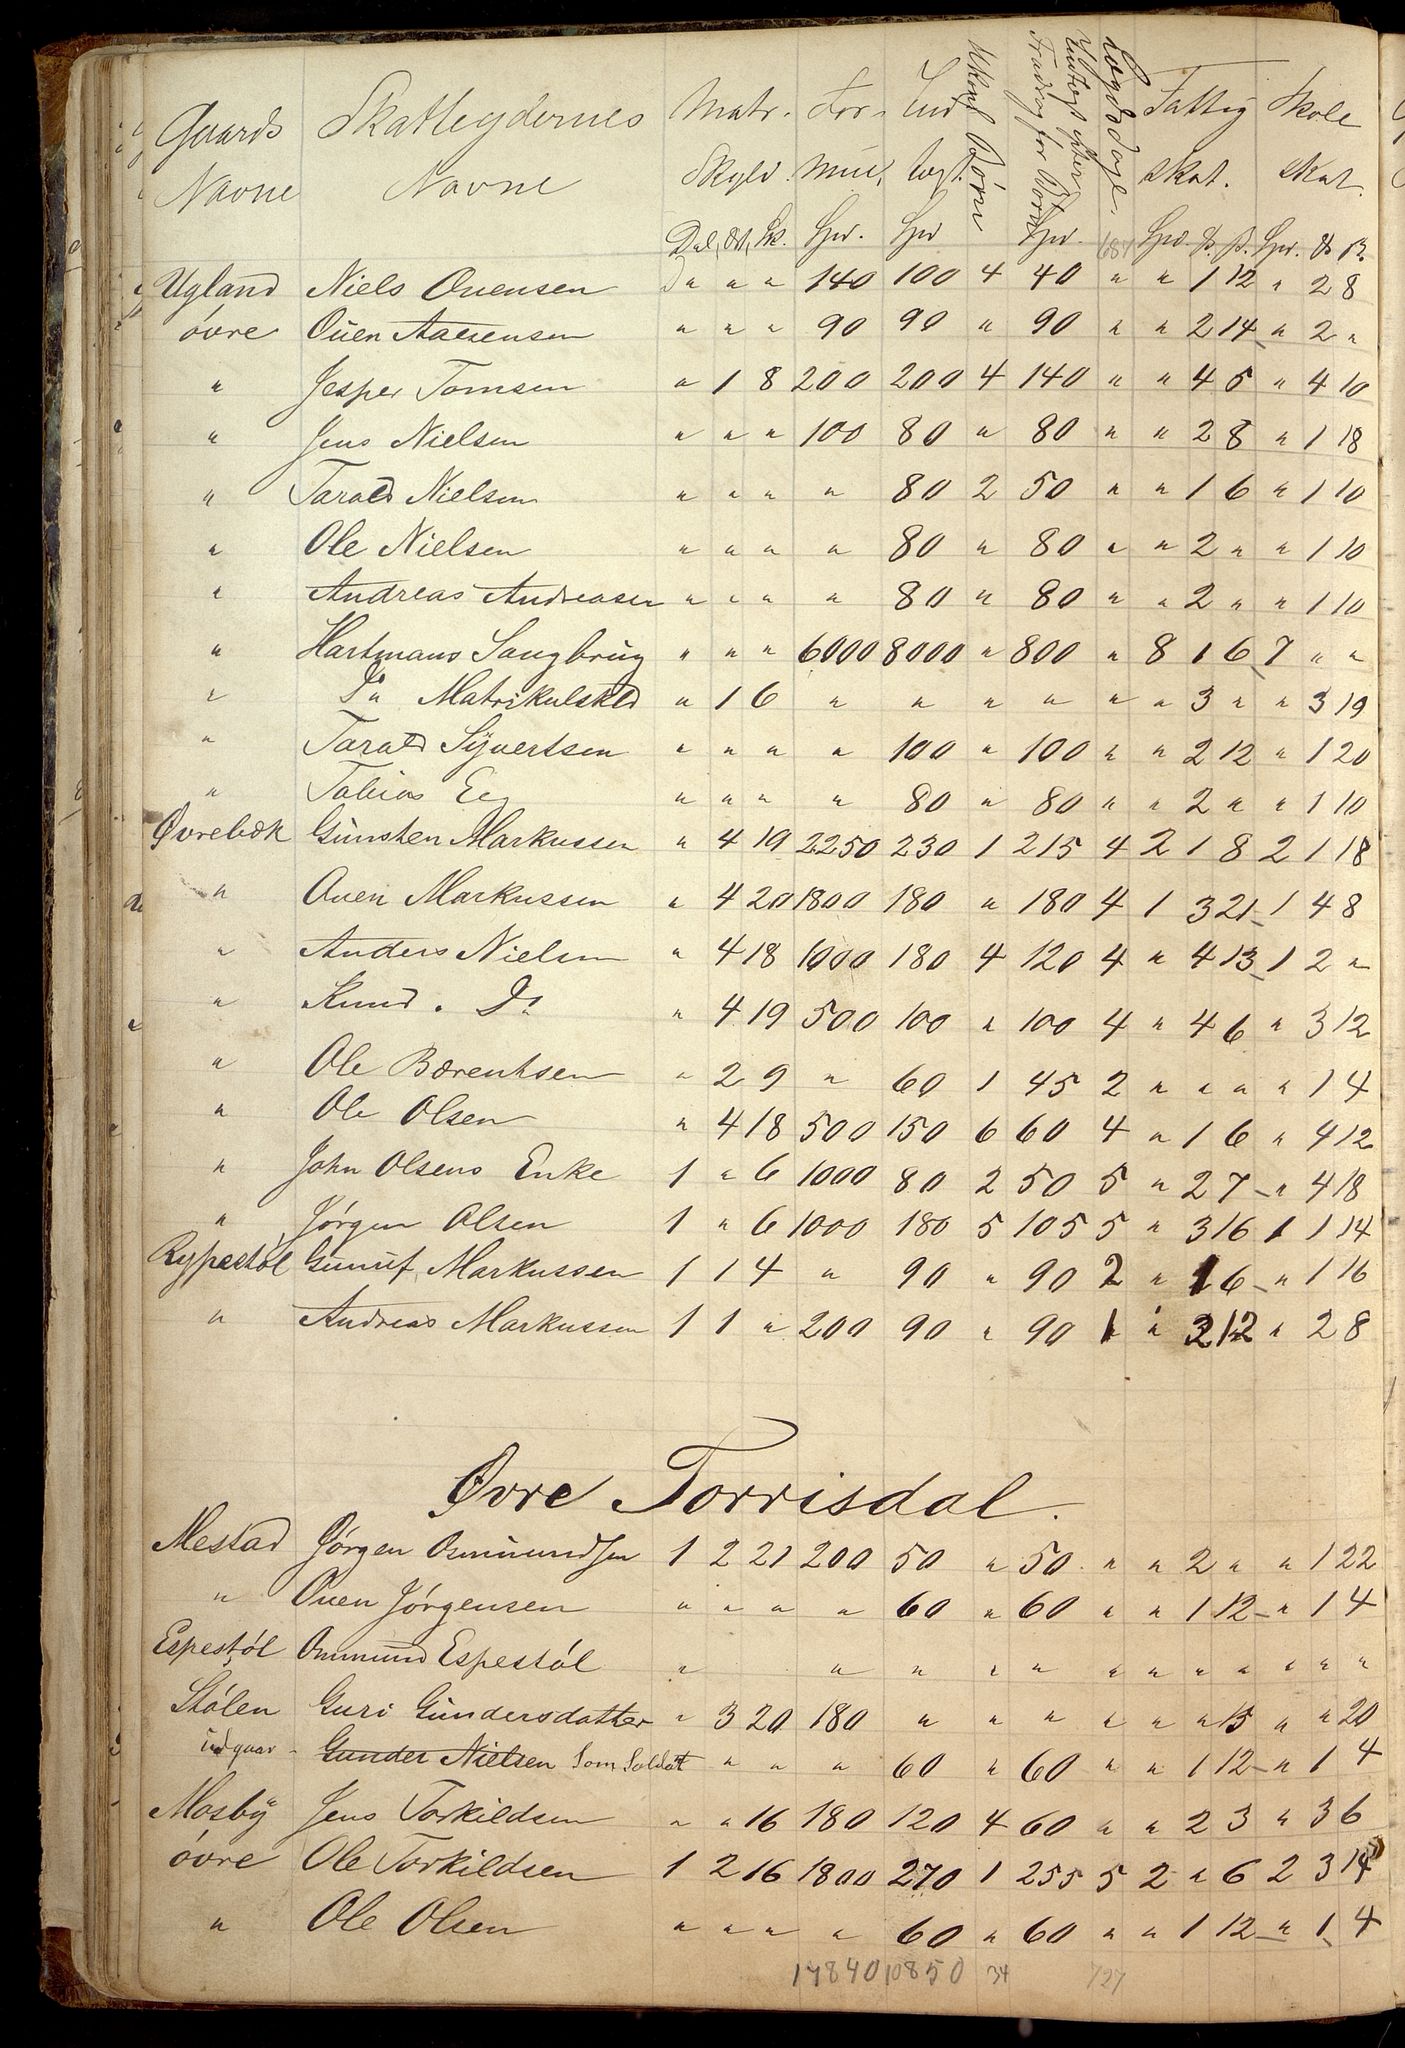 Guards Skatteydernes Matr. For- Ind Ukonf Børn Indtægt efter Fradrag for Børn Lægdsdage. Fattig Skole
Navne Navne Skyld. mue, tægt. skat. skat.
Dal, Ort, Sk. Spd. Spd Spd. 684 Spd. Ort. ß. Spd. Ort ß.
Ugland Niels Ouensen " " " 140 100 4 40 " " 1 12 " 2 8
óvre Ouen Aanensen " " " 90 90 " 90 " " 2 14 " 2 "
" Jesper Tomsen " 1 8 200 200 4 140 " " 4 5 " 4 10
" Jens Nielsen " " " 100 80 " 80 " " 2 8 " 1 18
" Tarald Nielsen " " " " 80 2 50 " " 1 6 " 1 10
" Ole Nielsen " " " " 80 " 80 " " 2 " " 1 10
" Andreas Andreasen " " " " 80 " 80 " " 2 " " 1 10
" Hartmans Saugbrug " " " 6000 8000 " 800 " 8 1 6 7 " "
" Do Matrikulskld " 1 6 " " " " " " 3 " " 3 19
" Tarald Syvertsen " " " " 100 " 100 " " 2 12 " 1 20
" Tobias Eeg " " " " 80 " 80 " " 2 " " 1 10
Øvrebøk Gunsten Markussen " 4 19 2250 230 1 215 4 2 1 8 2 1 18
" Ouen Markussen " 4 20 1800 180 " 180 4 1 3 21 1 4 8
" Anders Nielsen " 4 18 1000 180 4 120 4 " 4 13 1 2 "
" Knud . Do " 4 19 500 100 " 100 4 " 4 6 " 3 12
" Ole Bærentsen " 2 9 " 60 1 45 2 " " " " 1 4
" Ole Olsen " 4 18 500 150 6 60 4 " 1 6 " 4 12
" John Olsens Enke 1 " 6 1000 80 2 50 5 " 2 7 " 4 18
" Jørgen Olsen 1 " 6 1000 180 5 105 5 " 3 16 1 1 14
Rypestøl Gunuf Markussen 1 1 4 " 90 " 90 2 " 1 6 " 1 16
" Andreas Markussen 1 1 " 200 90 " 90 1 " 2 12 " 2 8
Øvre Torrisdal.
Mestad Jørgen Ommundsen 1 2 21 200 50 " 50 " " 2 " " 1 22
" Ouen Jørgensen " " " " 60 " 60 " " 1 12 " 1 4
Espestøl Ommund Espestøl " " " " " " " " " " " "
Stólen Guri Gundersdatter " 3 20 180 " " " " " " 15 " " 20
udgaar Gunder Nielsen Som Soldat " " " 60 " 60 " " 1 12 " 1 4
Mosby Jens Torkildsen " " 16 180 120 4 60 " " 2 3 " 3 6
óvre Ole Torkildsen 1 2 16 1800 270 1 255 5 2 " 6 2 3 14
" Ole Olsen " " " " 60 " 60 " " 1 12 " 1 4
17840 10850 34 127